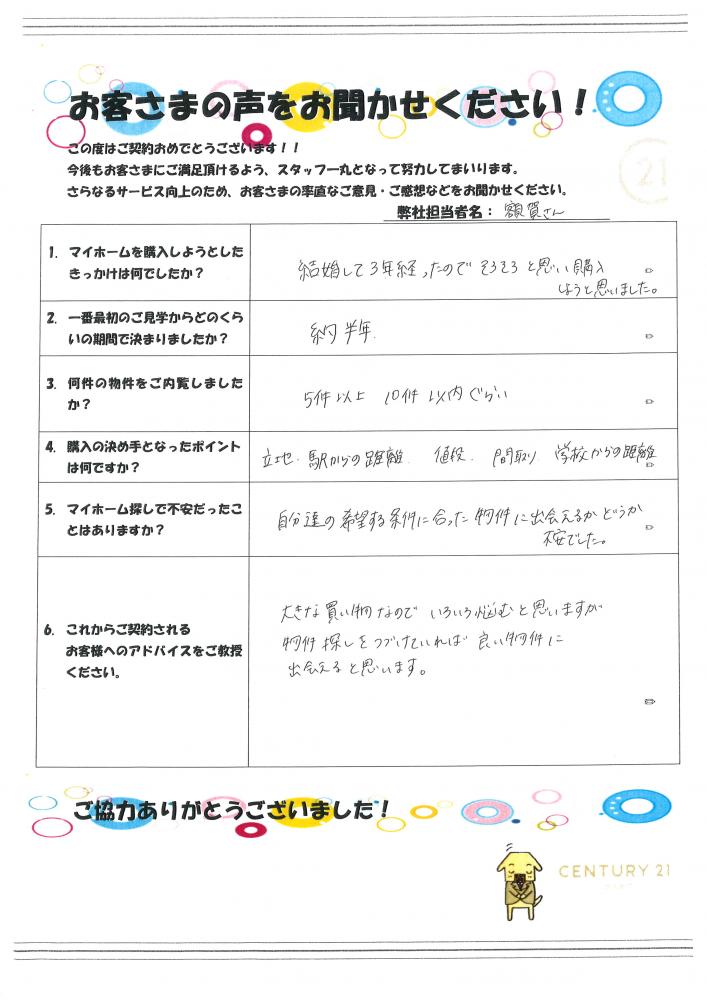 お客さまの声をお聞かせください！
この度はご契約おめでとうございます！！
今後もお客さまにご満足頂けるよう、スタッフ一丸となって努力してまいります。
さらなるサービス向上のため、お客さまの率直なご意見・ご感想などをお聞かせください。
21
弊社担当者名： 額賀さん
1. マイホームを購入しようとした
きっかけは何でしたか？
結婚して3年経ったので そろそろ と思い購入
しようと思いました。
2. 一番最初のご見学からどのくら
いの期間で決まりましたか？
約半年
3. 何件の物件をご内覧しました
か？
5件以上 10件以内ぐらい
4. 購入の決め手となったポイント
は何ですか？
立地・駅からの距離 値段 間取り 学校からの距離
5. マイホーム探しで不安だったこ
とはありますか？
自分達の希望する条件に合った物件に出会えるかどうか
不安でした。
6. これからご契約される
お客様へのアドバイスをご教授
ください。
大きな買い物なので いろいろ悩むと思いますが
物件探しをつづけていれば 良い物件に
出会えると思います。
ご協力ありがとうございました！
CENTURY 21